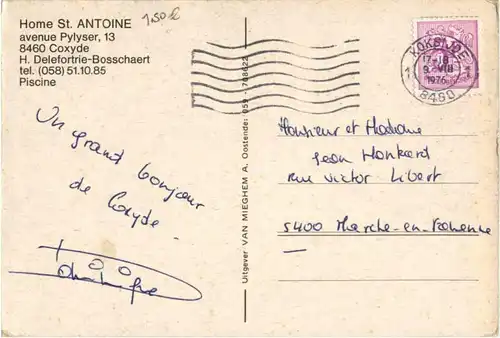 Home St. ANTOINE
avenue Pylyser, 13
8460 Coxyde
H. Delefortrie-Bosschaert
tel. (058) 51.10.85
Piscine
1,50 €
Un grand bonjour
de Coxyde.
Uitgever VAN MIEGHEM A. Oostende: 059 - 708622
KOKSIJDE
17-18
9-VIII
1976
8460
Monsieur et Madame
Jean Honkard
rue Victor Libert
5400 Marche-en-Famenne